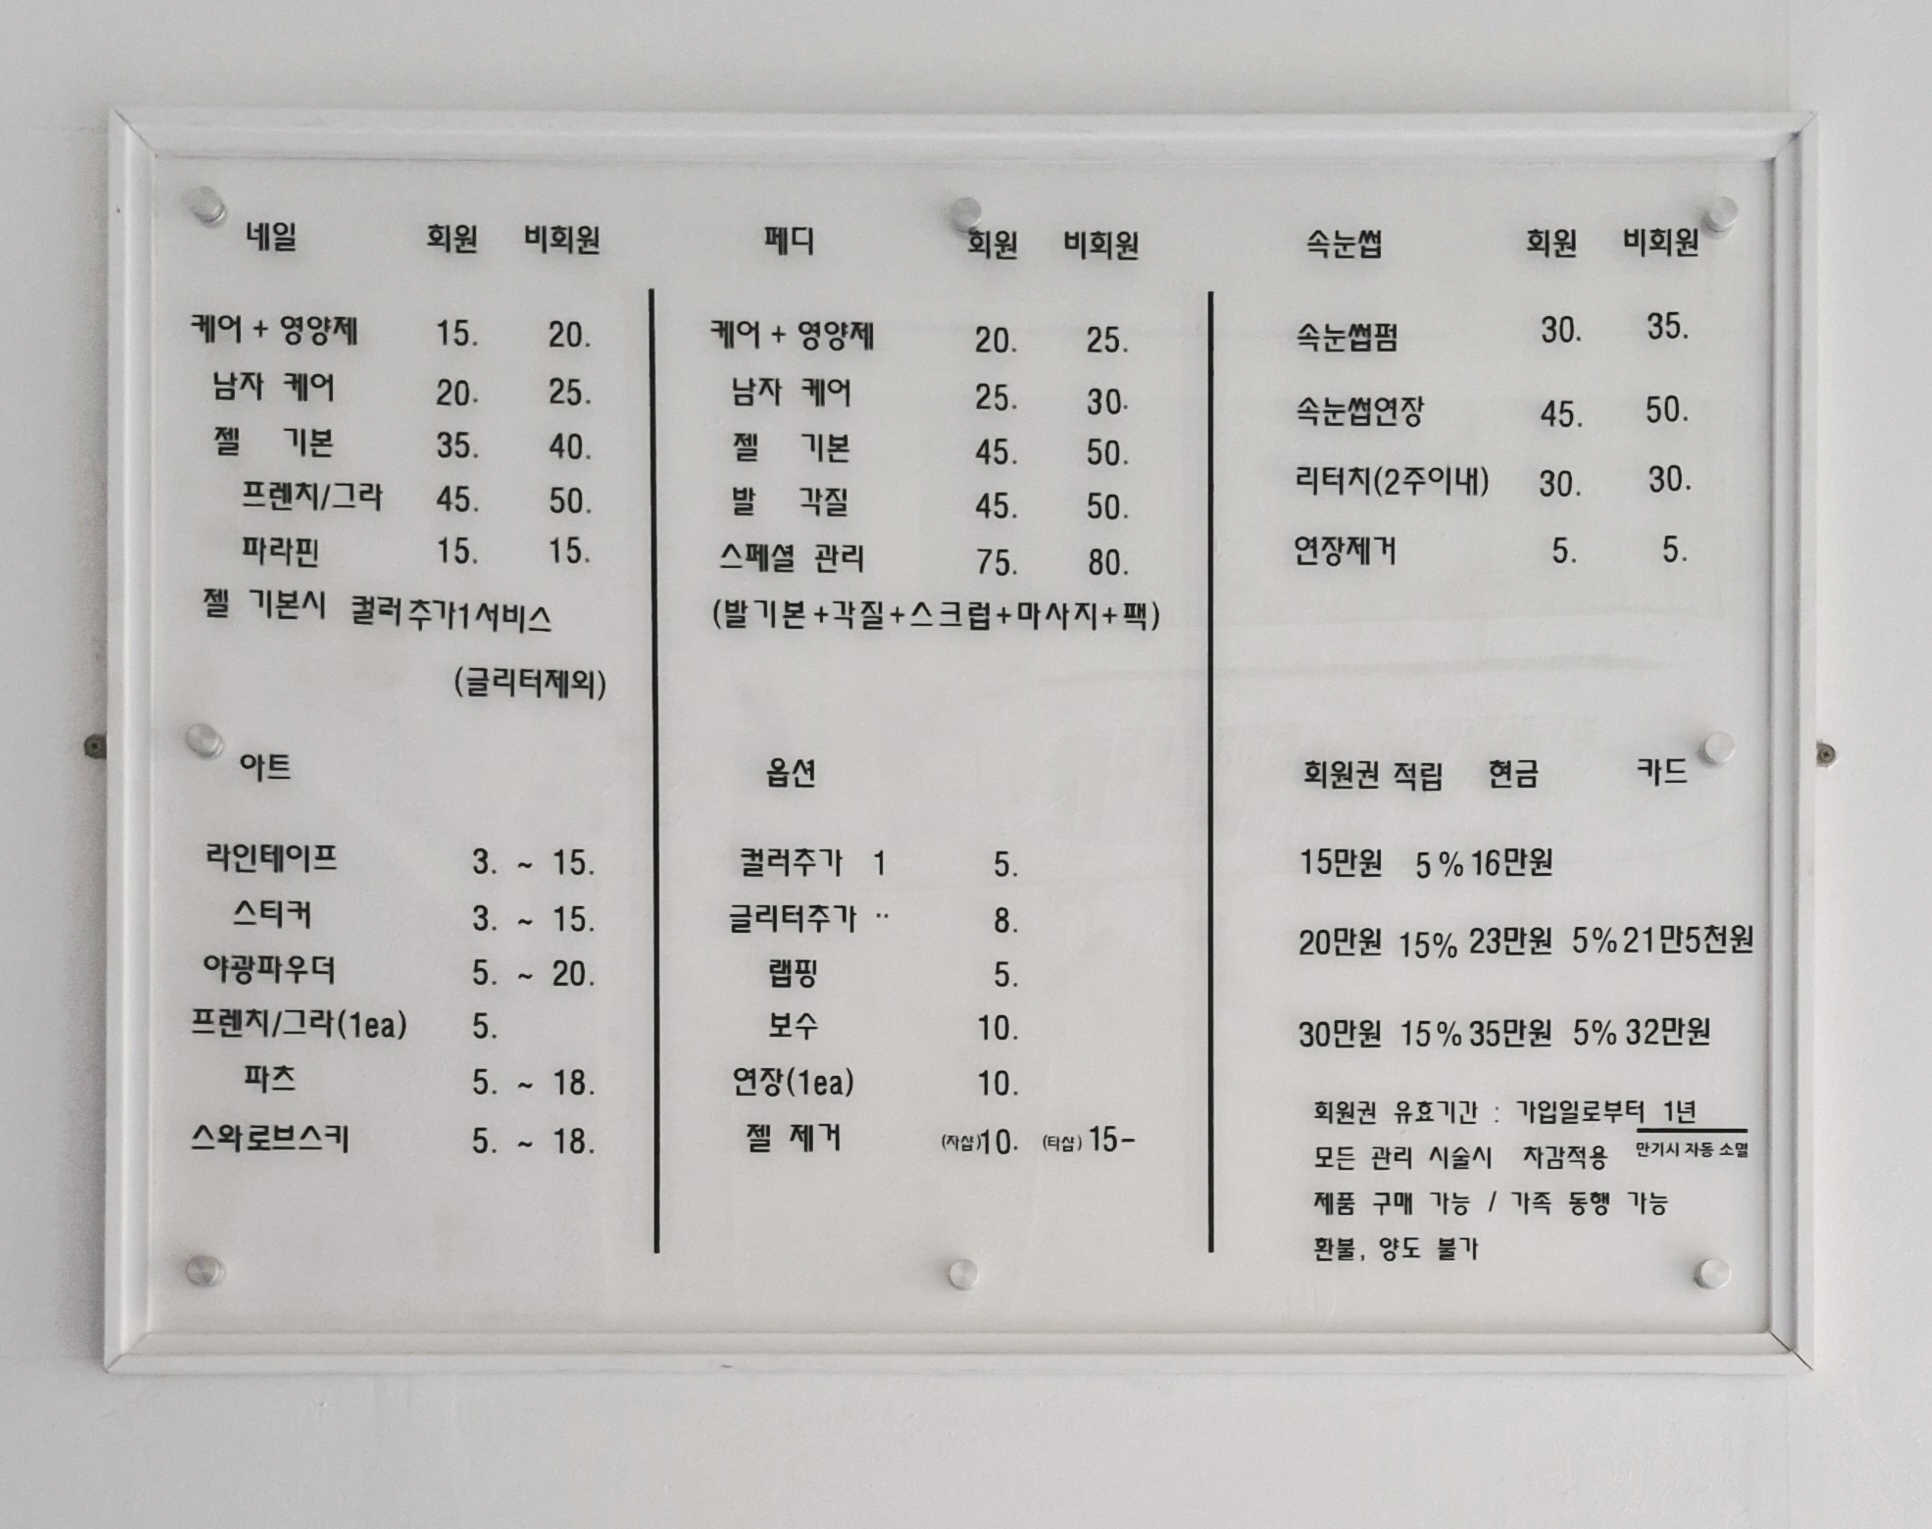 네일 회원 비회원
케어 + 영양제 15. 20.
남자 케어 20. 25.
젤 기본 35. 40.
프렌치/그라 45. 50.
파라핀 15. 15.
젤 기본시 컬러추가1서비스
(글리터제외)
페디 회원 비회원
케어 + 영양제 20. 25.
남자 케어 25. 30.
젤 기본 45. 50.
발 각질 45. 50.
스페셜 관리 75. 80.
(발기본+각질+스크럽+마사지+팩)
속눈썹 회원 비회원
속눈썹펌 30. 35.
속눈썹연장 45. 50.
리터치(2주이내) 30. 30.
연장제거 5. 5.
아트
라인테이프 3. ~ 15.
스티커 3. ~ 15.
야광파우더 5. ~ 20.
프렌치/그라(1ea) 5.
파츠 5. ~ 18.
스와로브스키 5. ~ 18.
옵션
컬러추가 1 5.
글리터추가 ·· 8.
랩핑 5.
보수 10.
연장(1ea) 10.
젤 제거 (자샵)10. (타샵)15-
회원권 적립 현금 카드
15만원 5% 16만원
20만원 15% 23만원 5% 21만5천원
30만원 15% 35만원 5% 32만원
회원권 유효기간 : 가입일로부터 1년
만기시 자동 소멸
모든 관리 시술시 차감적용
제품 구매 가능 / 가족 동행 가능
환불, 양도 불가